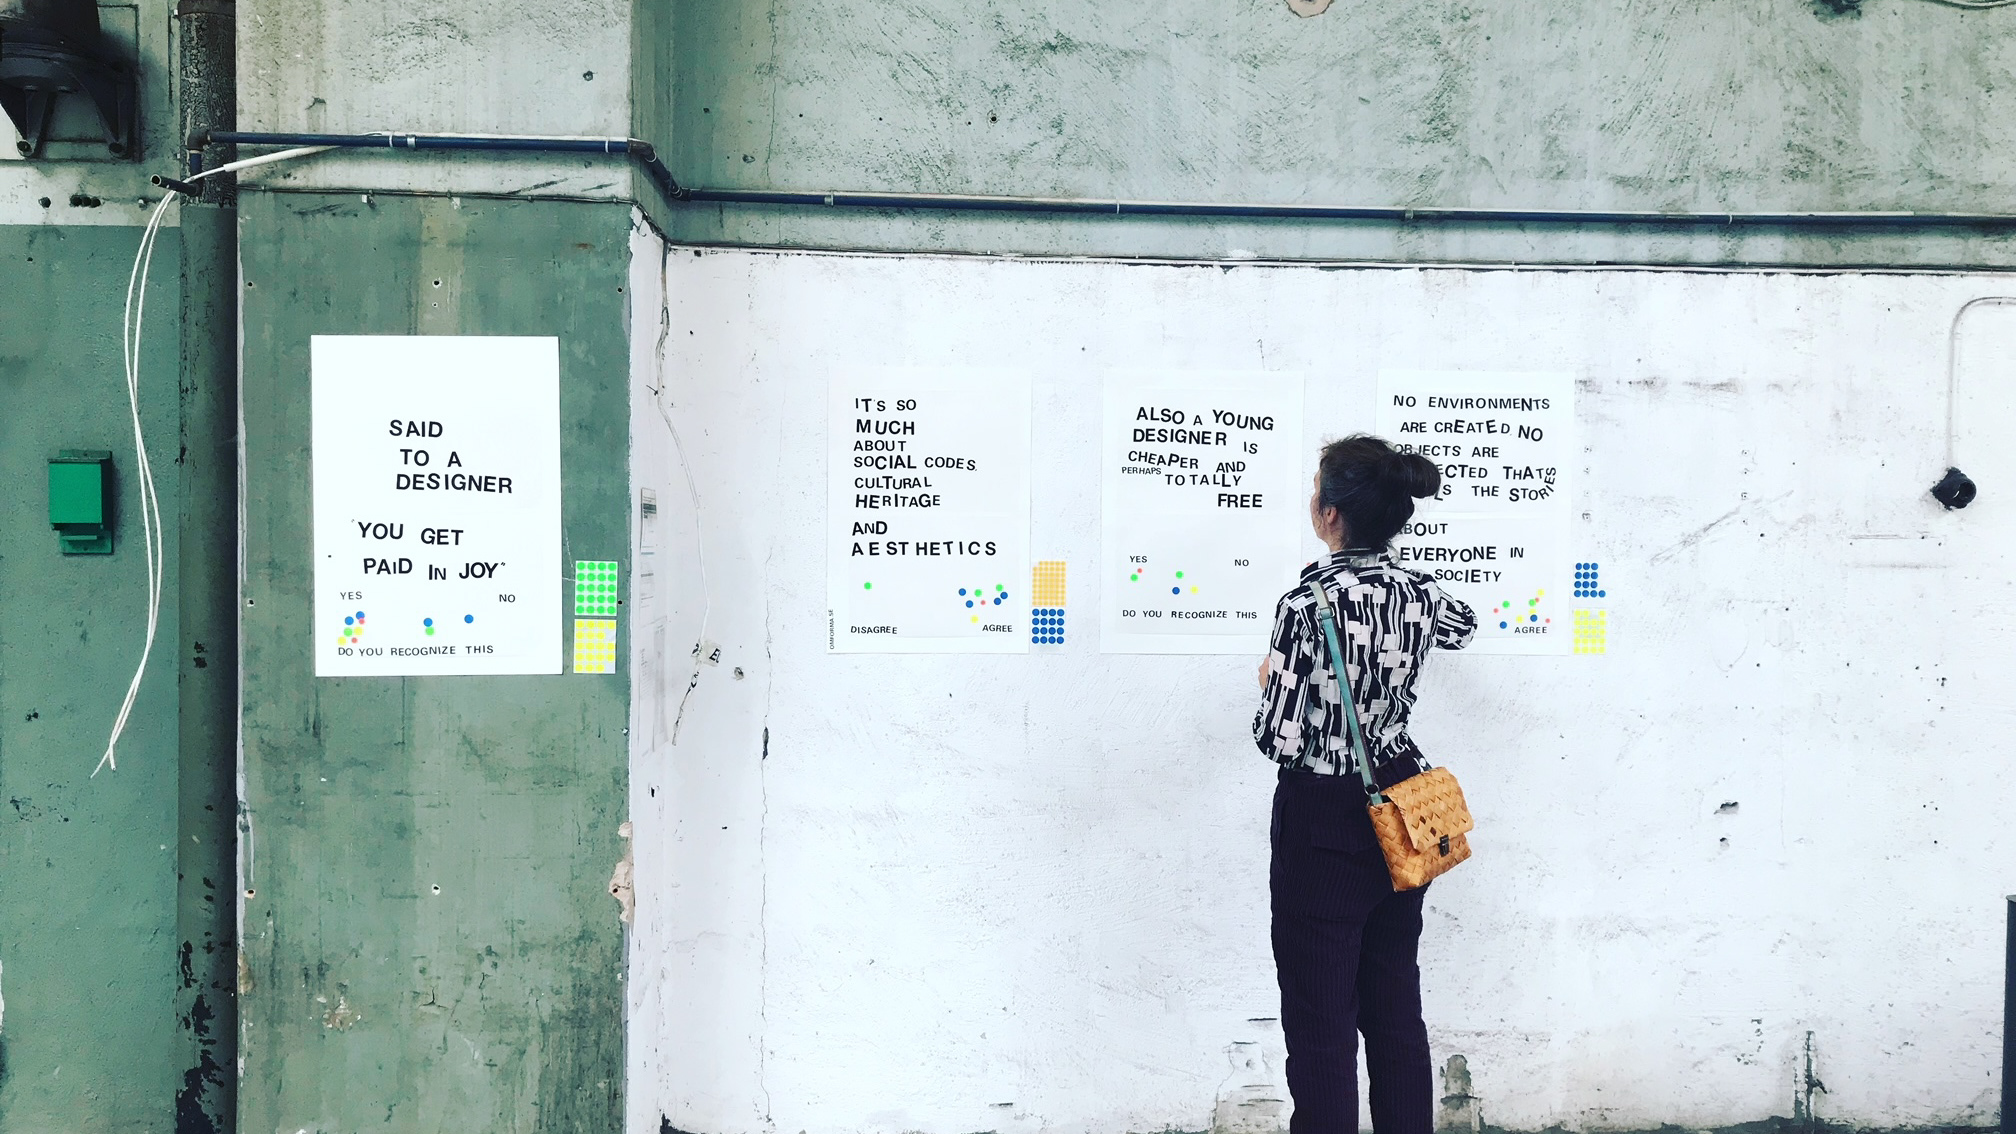 SAID
TO A
DESIGNER
"YOU GET
PAID IN JOY"
YES NO
DO YOU RECOGNIZE THIS
IT'S SO
MUCH
ABOUT
SOCIAL CODES,
CULTURAL
HERITAGE
AND
AESTHETICS
DISAGREE AGREE
OMFORMA.SE
ALSO A YOUNG
DESIGNER IS
CHEAPER AND
PERHAPS TOTALLY
FREE
YES NO
DO YOU RECOGNIZE THIS
NO ENVIRONMENTS
ARE CREATED, NO
OBJECTS ARE
THATS
THE STORIES
ABOUT
EVERYONE IN
SOCIETY
AGREE